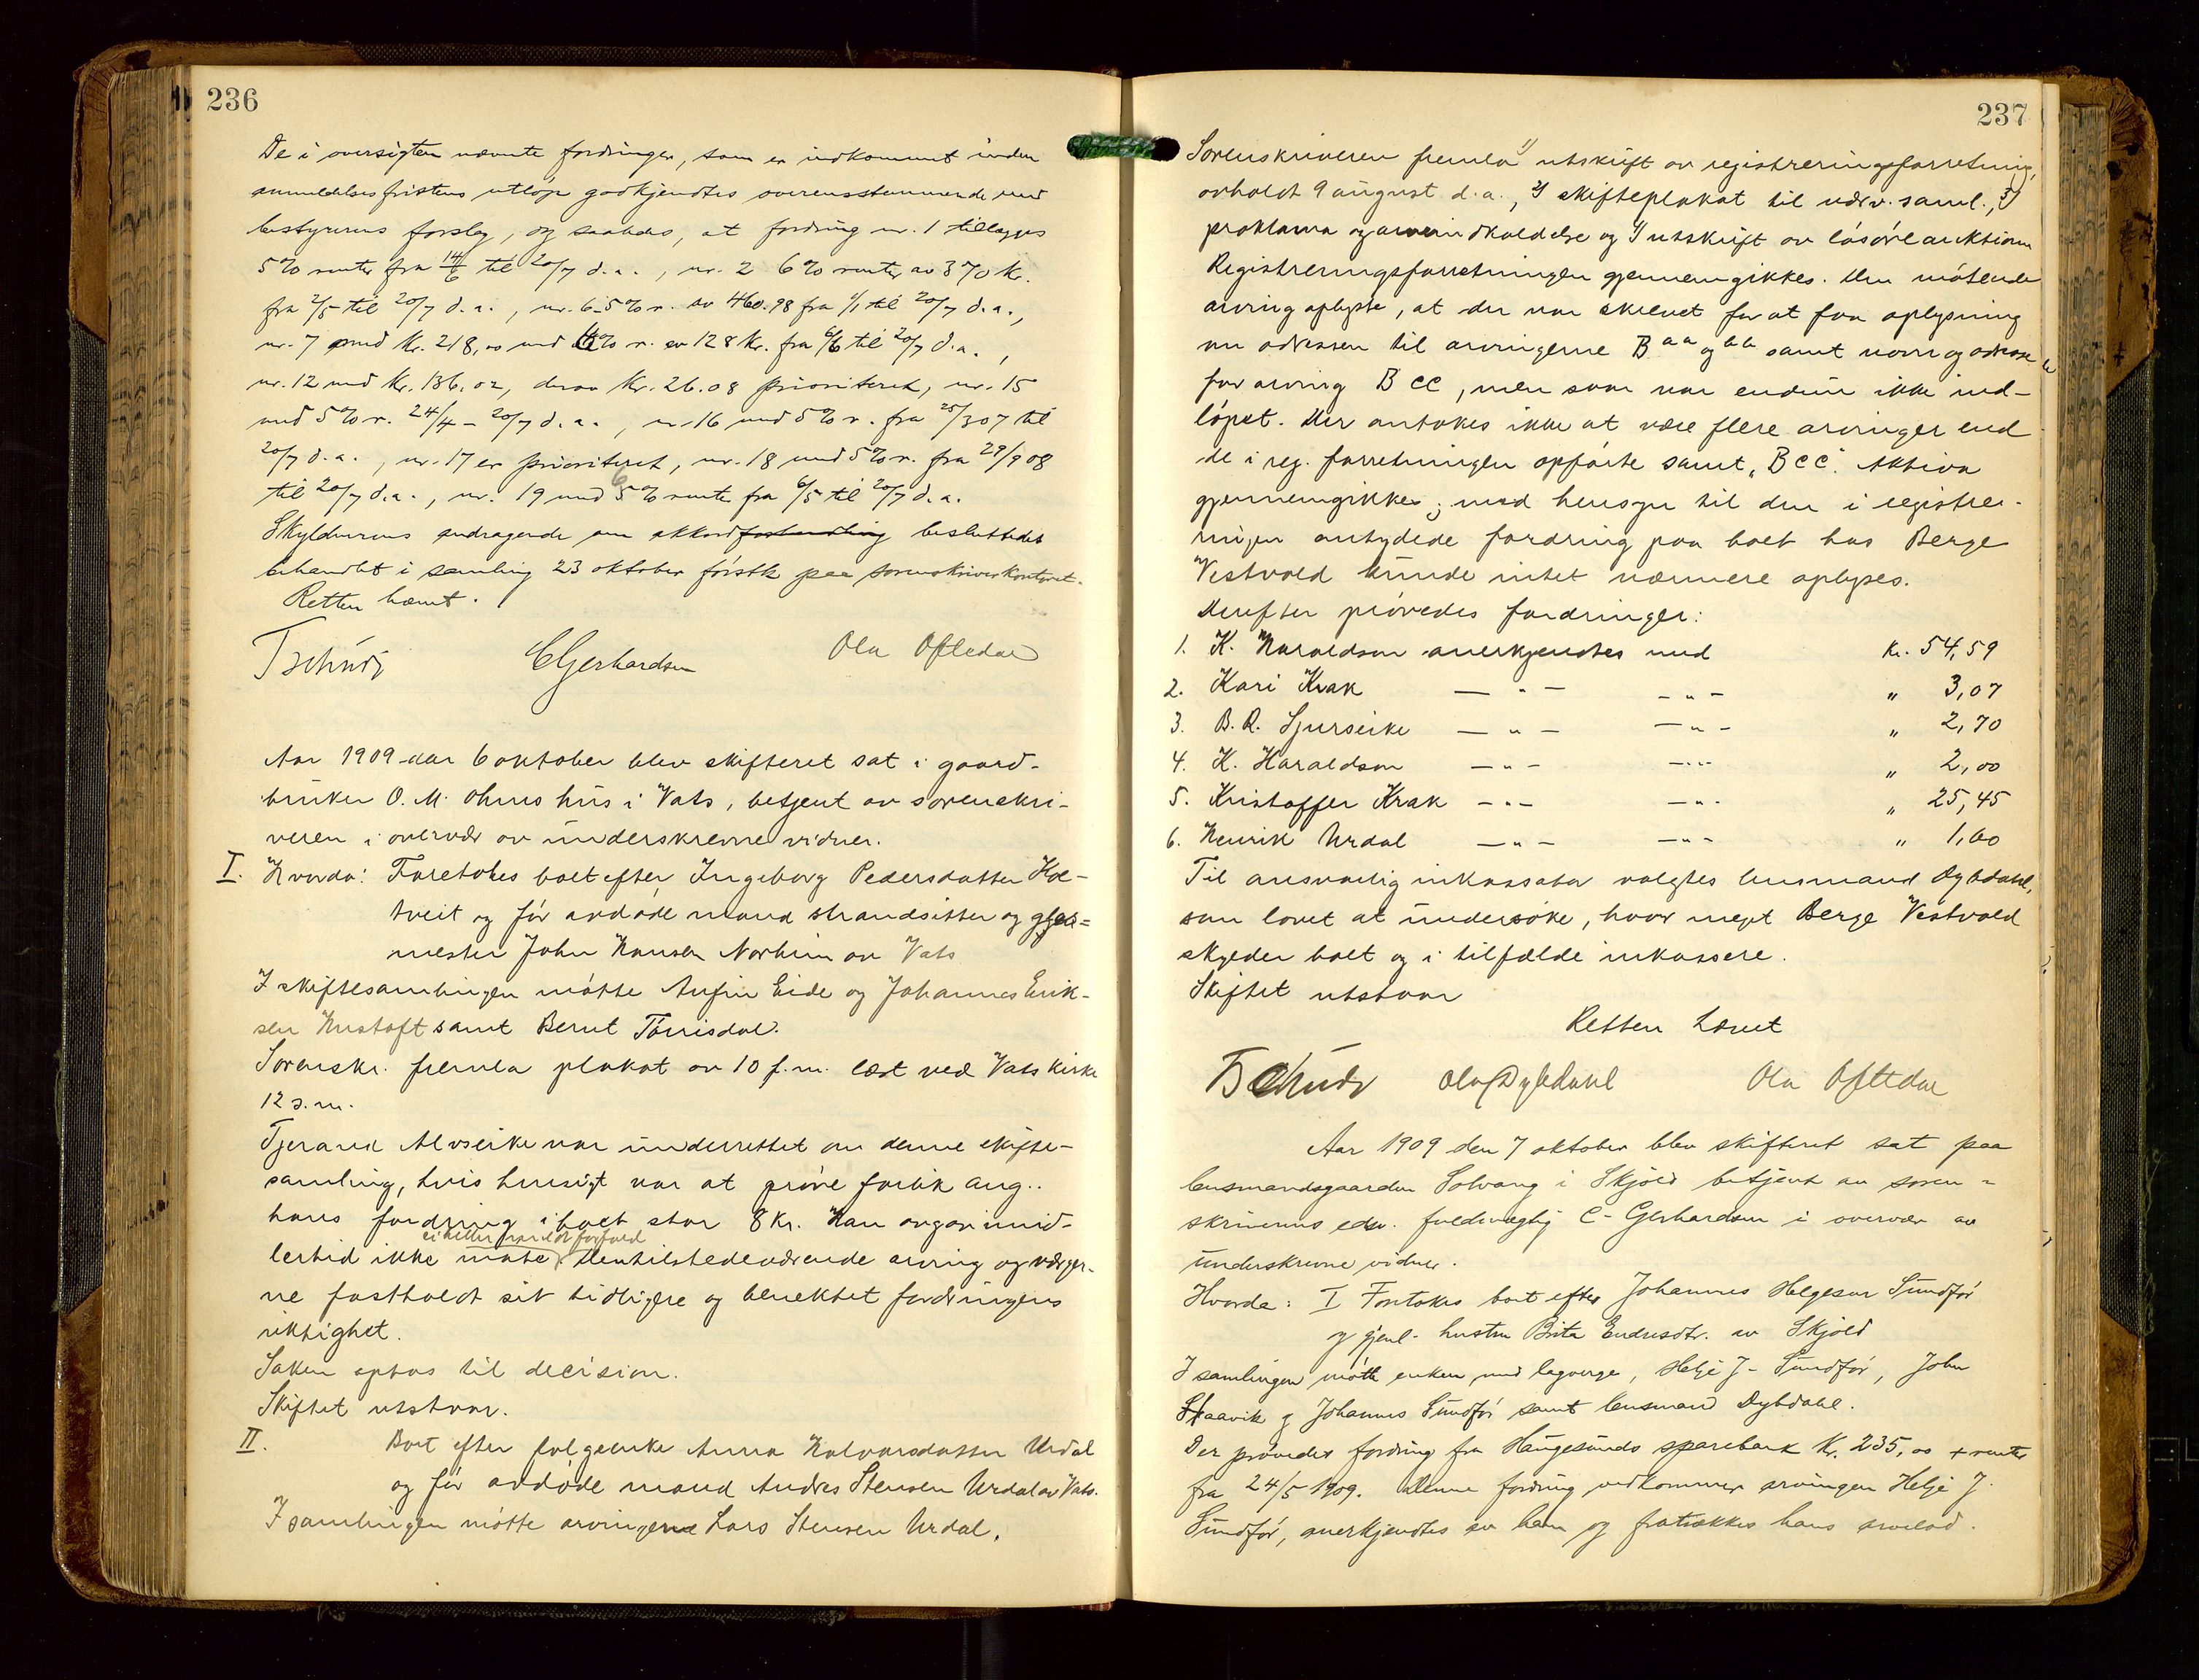 236
De i oversigten nævnte fordringer, som er indkommet inden
anmeldelsesfristens utløp godkjendtes overensstemmende med
bestyrerens forslag, og saaledes, at fordring nr. 1 tillægges
5% renter fra 14/6 til 20/7 d.a., nr. 2 6% renter av 370 kr.
fra 2/5 til 20/7 d.a., nr. 6 5% r. av 460.98 fra 1/1 til 20/7 d.a.,
nr. 7 med kr. 218,00 med 6% r. av 128 kr. fra 6/6 til 20/7 d.a.,
nr. 12 med kr. 136,02, derav kr. 26.08 prioriteret, nr. 15
med 5% r. 24/4 - 20/7 d.a., nr. 16 med 5% r. fra 25/3 07 til
20/7 d.a., nr. 17 er prioriteret, nr. 18 med 5% r. fra 29/9 08
til 20/7 d.a., nr. 19 med 6% rente fra 6/5 til 20/7 d.a.
Skyldnerens andragende om akkordforhandling besluttedes
behandlet i samling 23 oktober førstk. paa sorenskriverkontoret.
Retten hævet.
Tschudi CGerhardsen Ola Oftedal
Aar 1909 den 6 oktober blev skifteret sat i gaard-
bruker O. M. Øhrns hus i Vats, betjent av sorenskri-
veren i overvær av underskrevne vidner.
I. Hvorda: Foretokes boet efter Ingeborg Pedersdatter Kol-
tveit og før avdøde mand strandsitter og gjet-
mester John Hansen Norheim av Vats
I skiftesamlingen møtte Anfin Eide og Johannes Erik-
sen Knutsoft samt Bernt Tørrisdal.
Sorenskr. fremla plakat av 10 f.m. læst ved Vats kirke
12 s.m.
Tjerand Alvseike var underrettet om denne skifte-
samling, hvis hensigt var at prøve forlik ang..
hans fordring i boet stor 8 kr. Han avgav imid-
ei heller meldt forfald
lertid ikke møte. Den tilstedeværende arving og værger-
ne fastholdt sit tidligere og benektet fordringens
riktighet.
Saken optas til decision.
Skiftet utstaar.
II. Boet efter folgeenke Anna Halvorsdatter Urdal
og før avdøde mand Andres Stensen Urdal av Vats.
I samlingen møtte arvingerne Lars Stensen Urdal,
237
Sorenskriveren fremla 1) utskrift av registreringsforretning,
avholdt 9 august d.a., 2) skifteplakat til nærv. saml., 3)
proklama og arveindkaldelse og 4) utskrift av løsøreauktion
Registreringsforretningen gjennemgikkes. Den møtende
arving oplyste, at der var skrevet for at faa oplysning
om adressen til arvingerne B aa og bb samt navn og adresse
for arving B cc, men svar var endnu ikke ind-
løpet. Der antokes ikke at være flere arvinger end
de i reg. forretningen opførte samt „B cc". Aktiva
gjennemgikkes; med hensyn til den i registrer-
ringen antydede fordring paa boet hos Berge
Vestvold kunde intet nærmere oplyses.
Derefter prøvedes fordringer:
1. K. Haraldson anerkjendtes med kr. 54,59
2. Kari Krak — „ — — „ — „ 3,07
3. B. R. Sjurseike — „ — — „ — „ 2,70
4. K. Haraldson — „ — — „ — „ 2,00
5. Kristoffer Krak — „ — — „ — „ 25,45
6. Henrik Urdal — „ — — „ — „ 1,60
Til ansvarlig inkassator valgtes lensmand Dybdahl,
som lovet at undersøke, hvor meget Berge Vestvold
skylder boet og i tilfælde inkassere.
Skiftet utstaar
Retten hævet
Tschudi Ola Dybdahl Ola Oftedal
Aar 1909 den 7 oktober blev skifteret sat paa
lensmandsgaarden Solvang i Skjold betjent av soren-
skriverens edsv. fuldmægtig C. Gerhardsen i overvær av
underskrevne vidner.
Hvorda: I Foretokes boet efter Johannes Helgesen Sundfør
og gjenl. hustru Brita Endresdtr. av Skjold
I samlingen møtte enken med lagverge, Helge J. Sundfør, John
Skaavik og Johannes Sundfør samt lensmand Dybdahl.
Der prøvedes fordring fra Haugesunds sparebank kr. 235,00 + renter
fra 24/5 1909. Denne fordring vedkommer arvingen Helge J.
Sundfør, anerkjendtes av ham og fratrækkes hans arvelod.